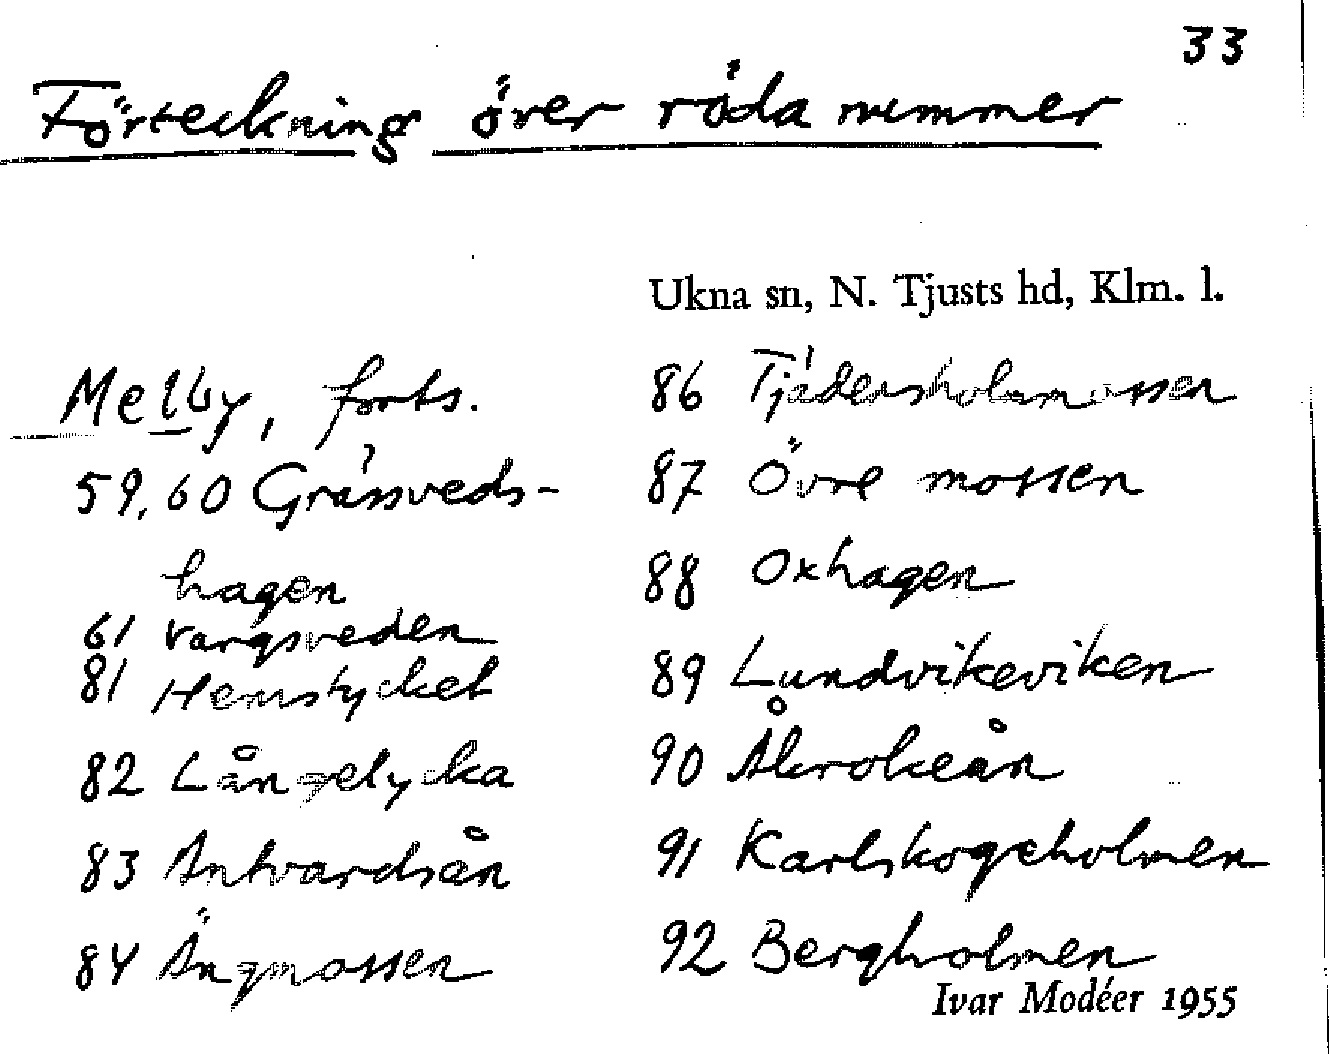 33
Förteckning över röda nummer
Ukna sn, N. Tjusts hd, Klm. l.
Melby, forts.
59, 60 Grässveds-
hagen
61 Vargsveden
81 Hemstycket
82 Långelycka
83 Antvardsån
84 Ängmossen
86 Tjädersholmsmossen
87 Övre mossen
88 Oxhagen
89 Lundvikeviken
90 Åkrokeån
91 Karlskogeholmen
92 Bergholmen
Ivar Modéer 1955